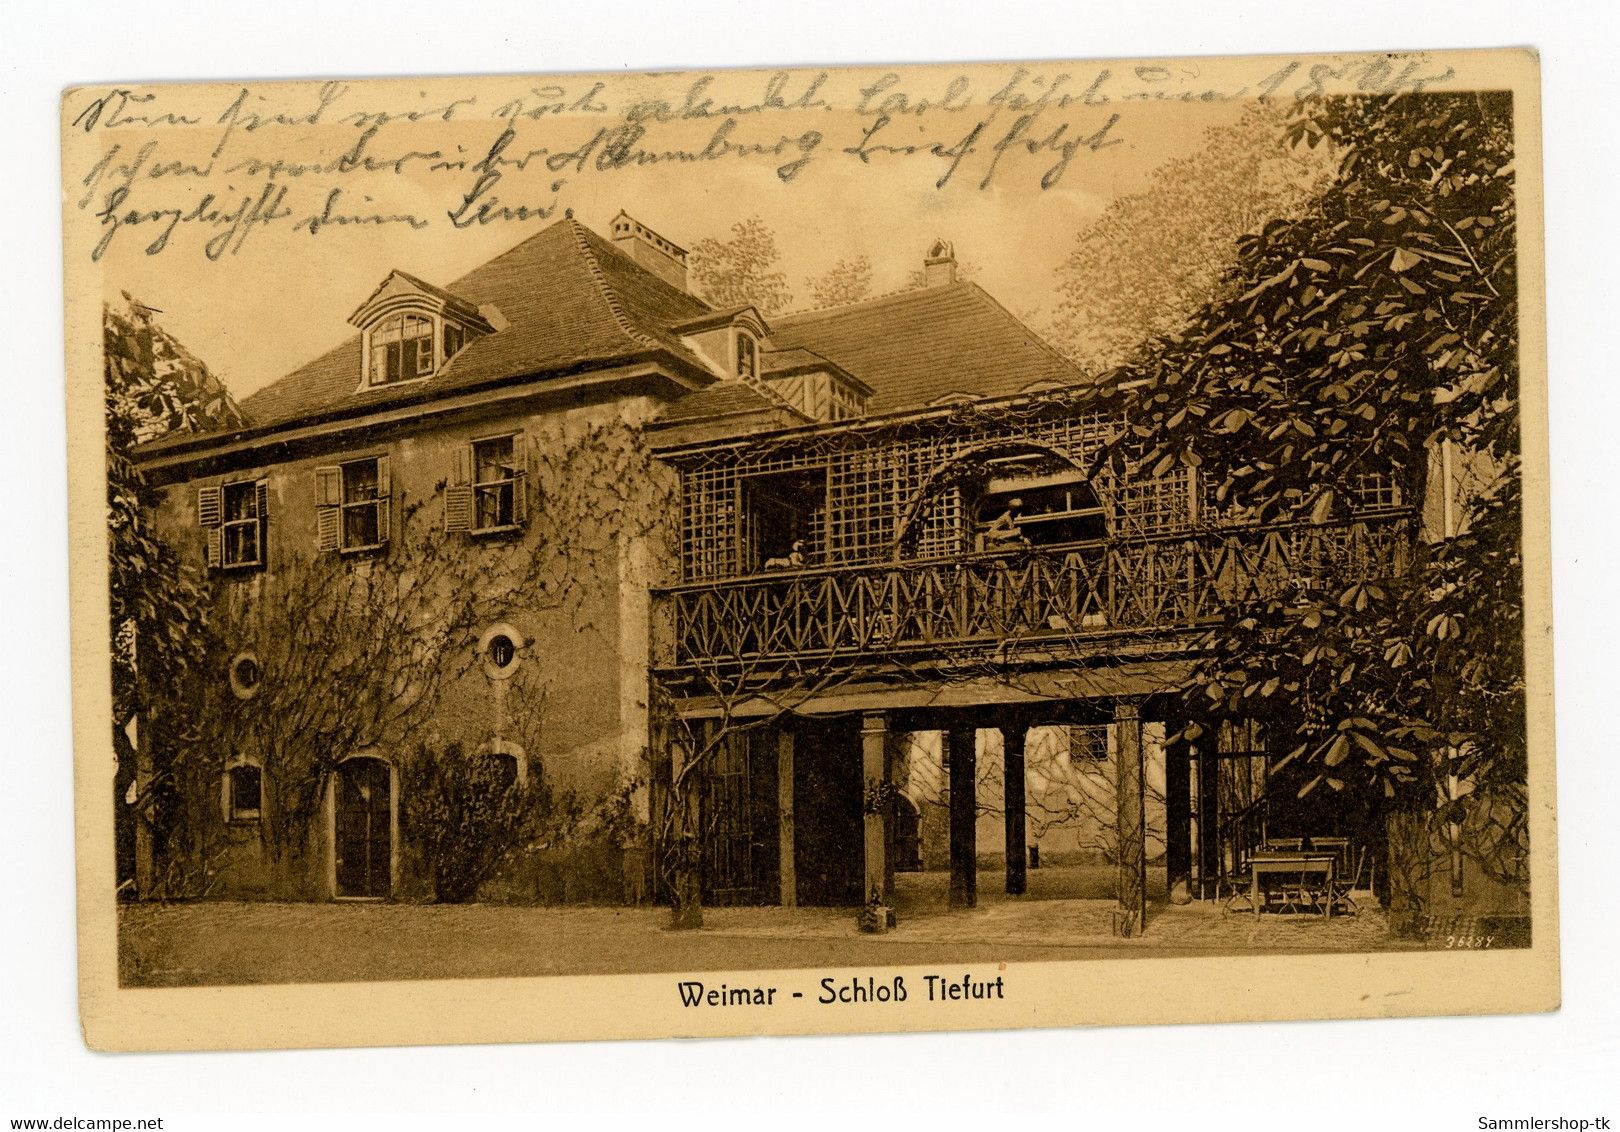 Nun sind wir gut gelandet. Carl fährt um 18 Uhr
schon weiter über Naumburg. Brief folgt.
Herzlichst Deine Leni.
36284
Weimar - Schloß Tiefurt
Sammlershop-tk